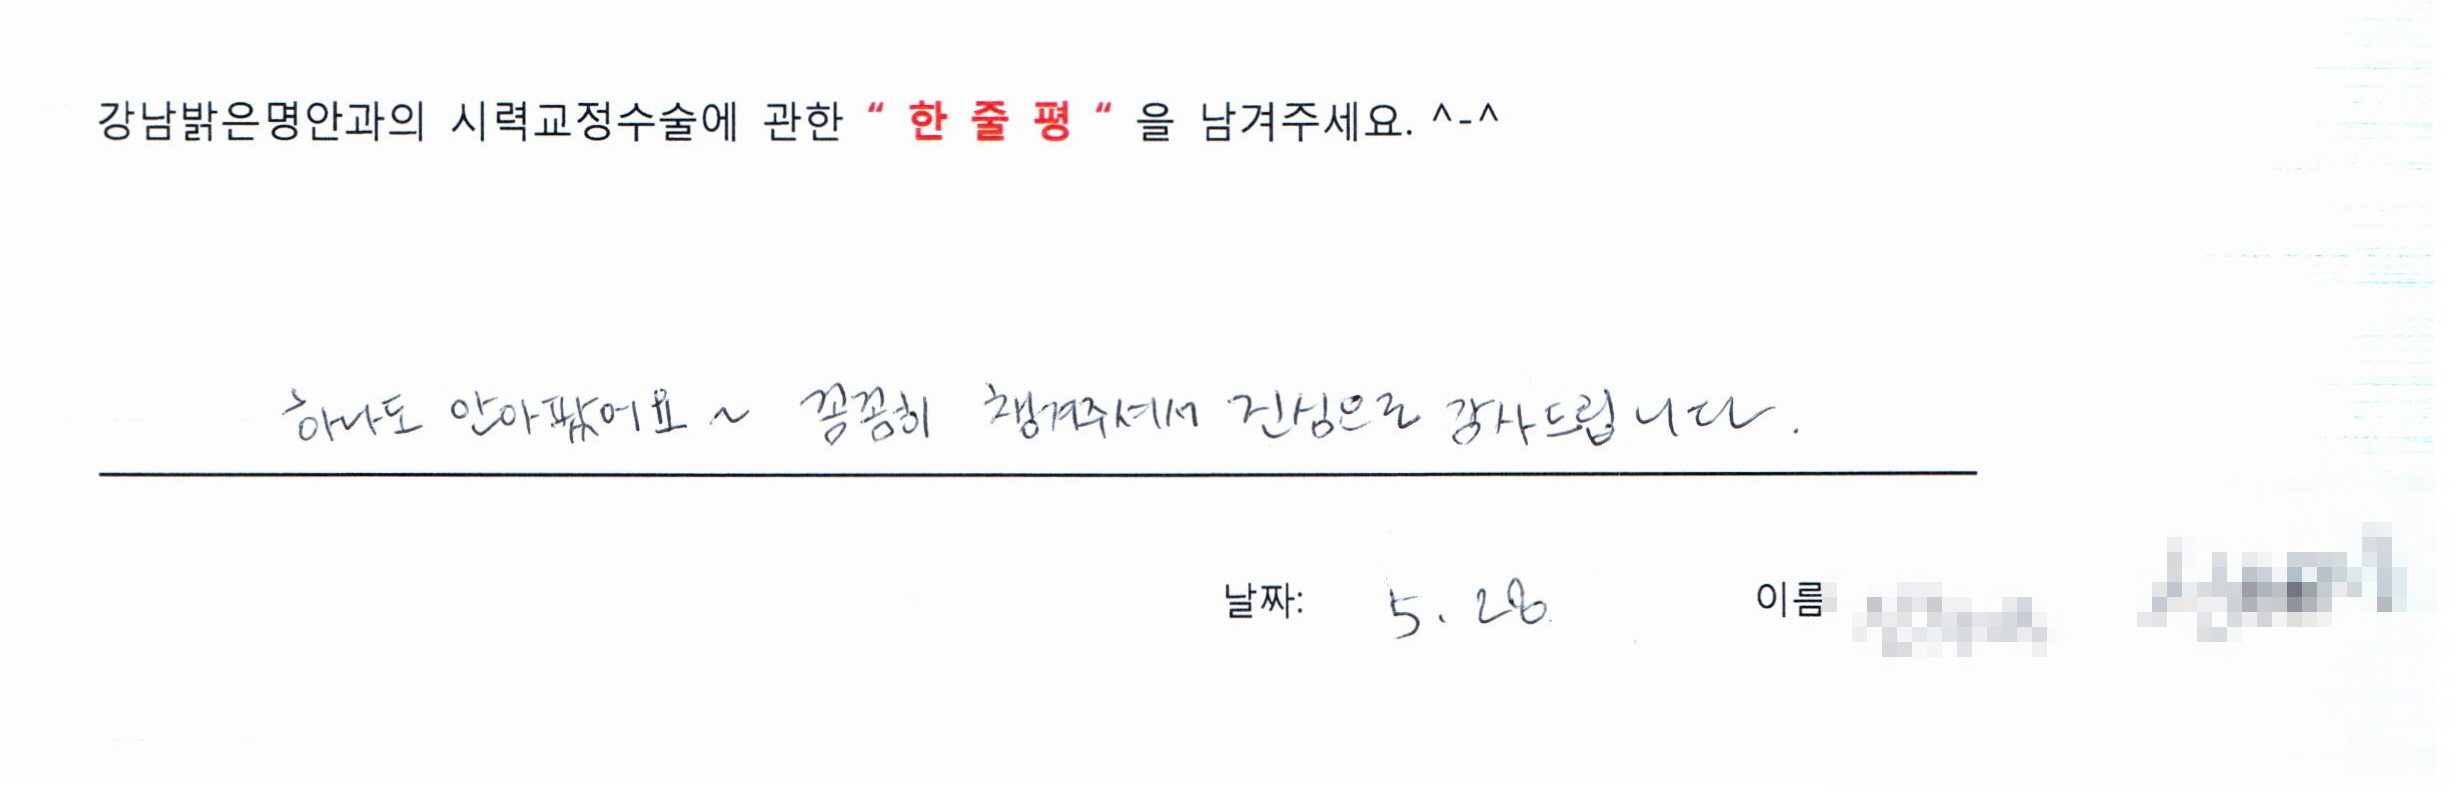 강남밝은명안과의 시력교정수술에 관한 “ 한 줄 평 “ 을 남겨주세요. ^-^
하나도 안아팠어요 ~ 꼼꼼히 챙겨주셔서 진심으로 감사드립니다.
날짜: 5. 28 이름